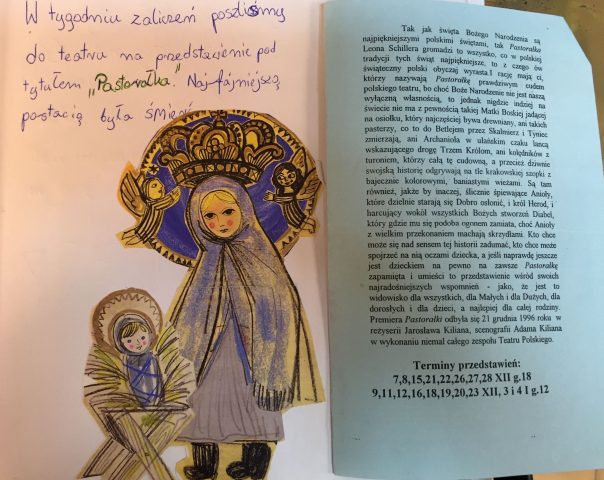 W tygodniu zaliczeń poszliśmy
do teatru na przedstawienie pod
tytułem „Pastorałka". Najfajniejszą
postacią była
Tak jak święta Bożego Narodzenia są
najpiękniejszymi polskimi świętami, tak Pastorałka
Leona Schillera gromadzi to wszystko, co w polskiej
tradycji tych świąt najpiękniejsze, to z czego ów
świąteczny polski obyczaj wyrasta. I rację mają ci,
którzy nazywają Pastorałkę prawdziwym cudem
polskiego teatru, bo choć Boże Narodzenie nie jest naszą
wyłączną własnością, to jednak nigdzie indziej na
świecie nie ma z pewnością takiej Matki Boskiej jadącej
na osiołku, który najczęściej bywa drewniany, ani takich
pasterzy, co to do Betlejem przez Skalmierz i Tyniec
zmierzają, ani Archanioła w ułańskim czaku lancą
wskazującego drogę Trzem Królom, ani kolędników z
turoniem, którzy całą tę cudowną, a przecież dziwnie
swojską historię odgrywają na tle krakowskiej szopki z
bajecznie kolorowymi, baniastymi wieżami. Są tam
również, jakże by inaczej, ślicznie śpiewające Anioły,
które dzielnie starają się Dobro osłonić, i król Herod, i
harcujący wokół wszystkich Bożych stworzeń Diabeł,
który gdzie mu się podoba ogonem zamiata, choć Anioły
z wielkim przekonaniem machają skrzydłami. Kto chce
może się nad sensem tej historii zadumać, kto chce może
spojrzeć na nią oczami dziecka, a jeśli naprawdę jeszcze
jest dzieckiem na pewno na zawsze Pastorałkę
zapamięta i umieści to przedstawienie wśród swoich
najradośniejszych wspomnień - jako, że jest to
widowisko dla wszystkich, dla Małych i dla Dużych, dla
dorosłych i dla dzieci, a najlepiej dla całej rodziny.
Premiera Pastorałki odbyła się 21 grudnia 1996 roku w
reżyserii Jarosława Kiliana, scenografii Adama Kiliana
w wykonaniu niemal całego zespołu Teatru Polskiego.
Terminy przedstawień:
7,8,15,21,22,26,27,28 XII g.18
9,11,12,16,18,19,20,23 XII, 3 i 4 I g.12